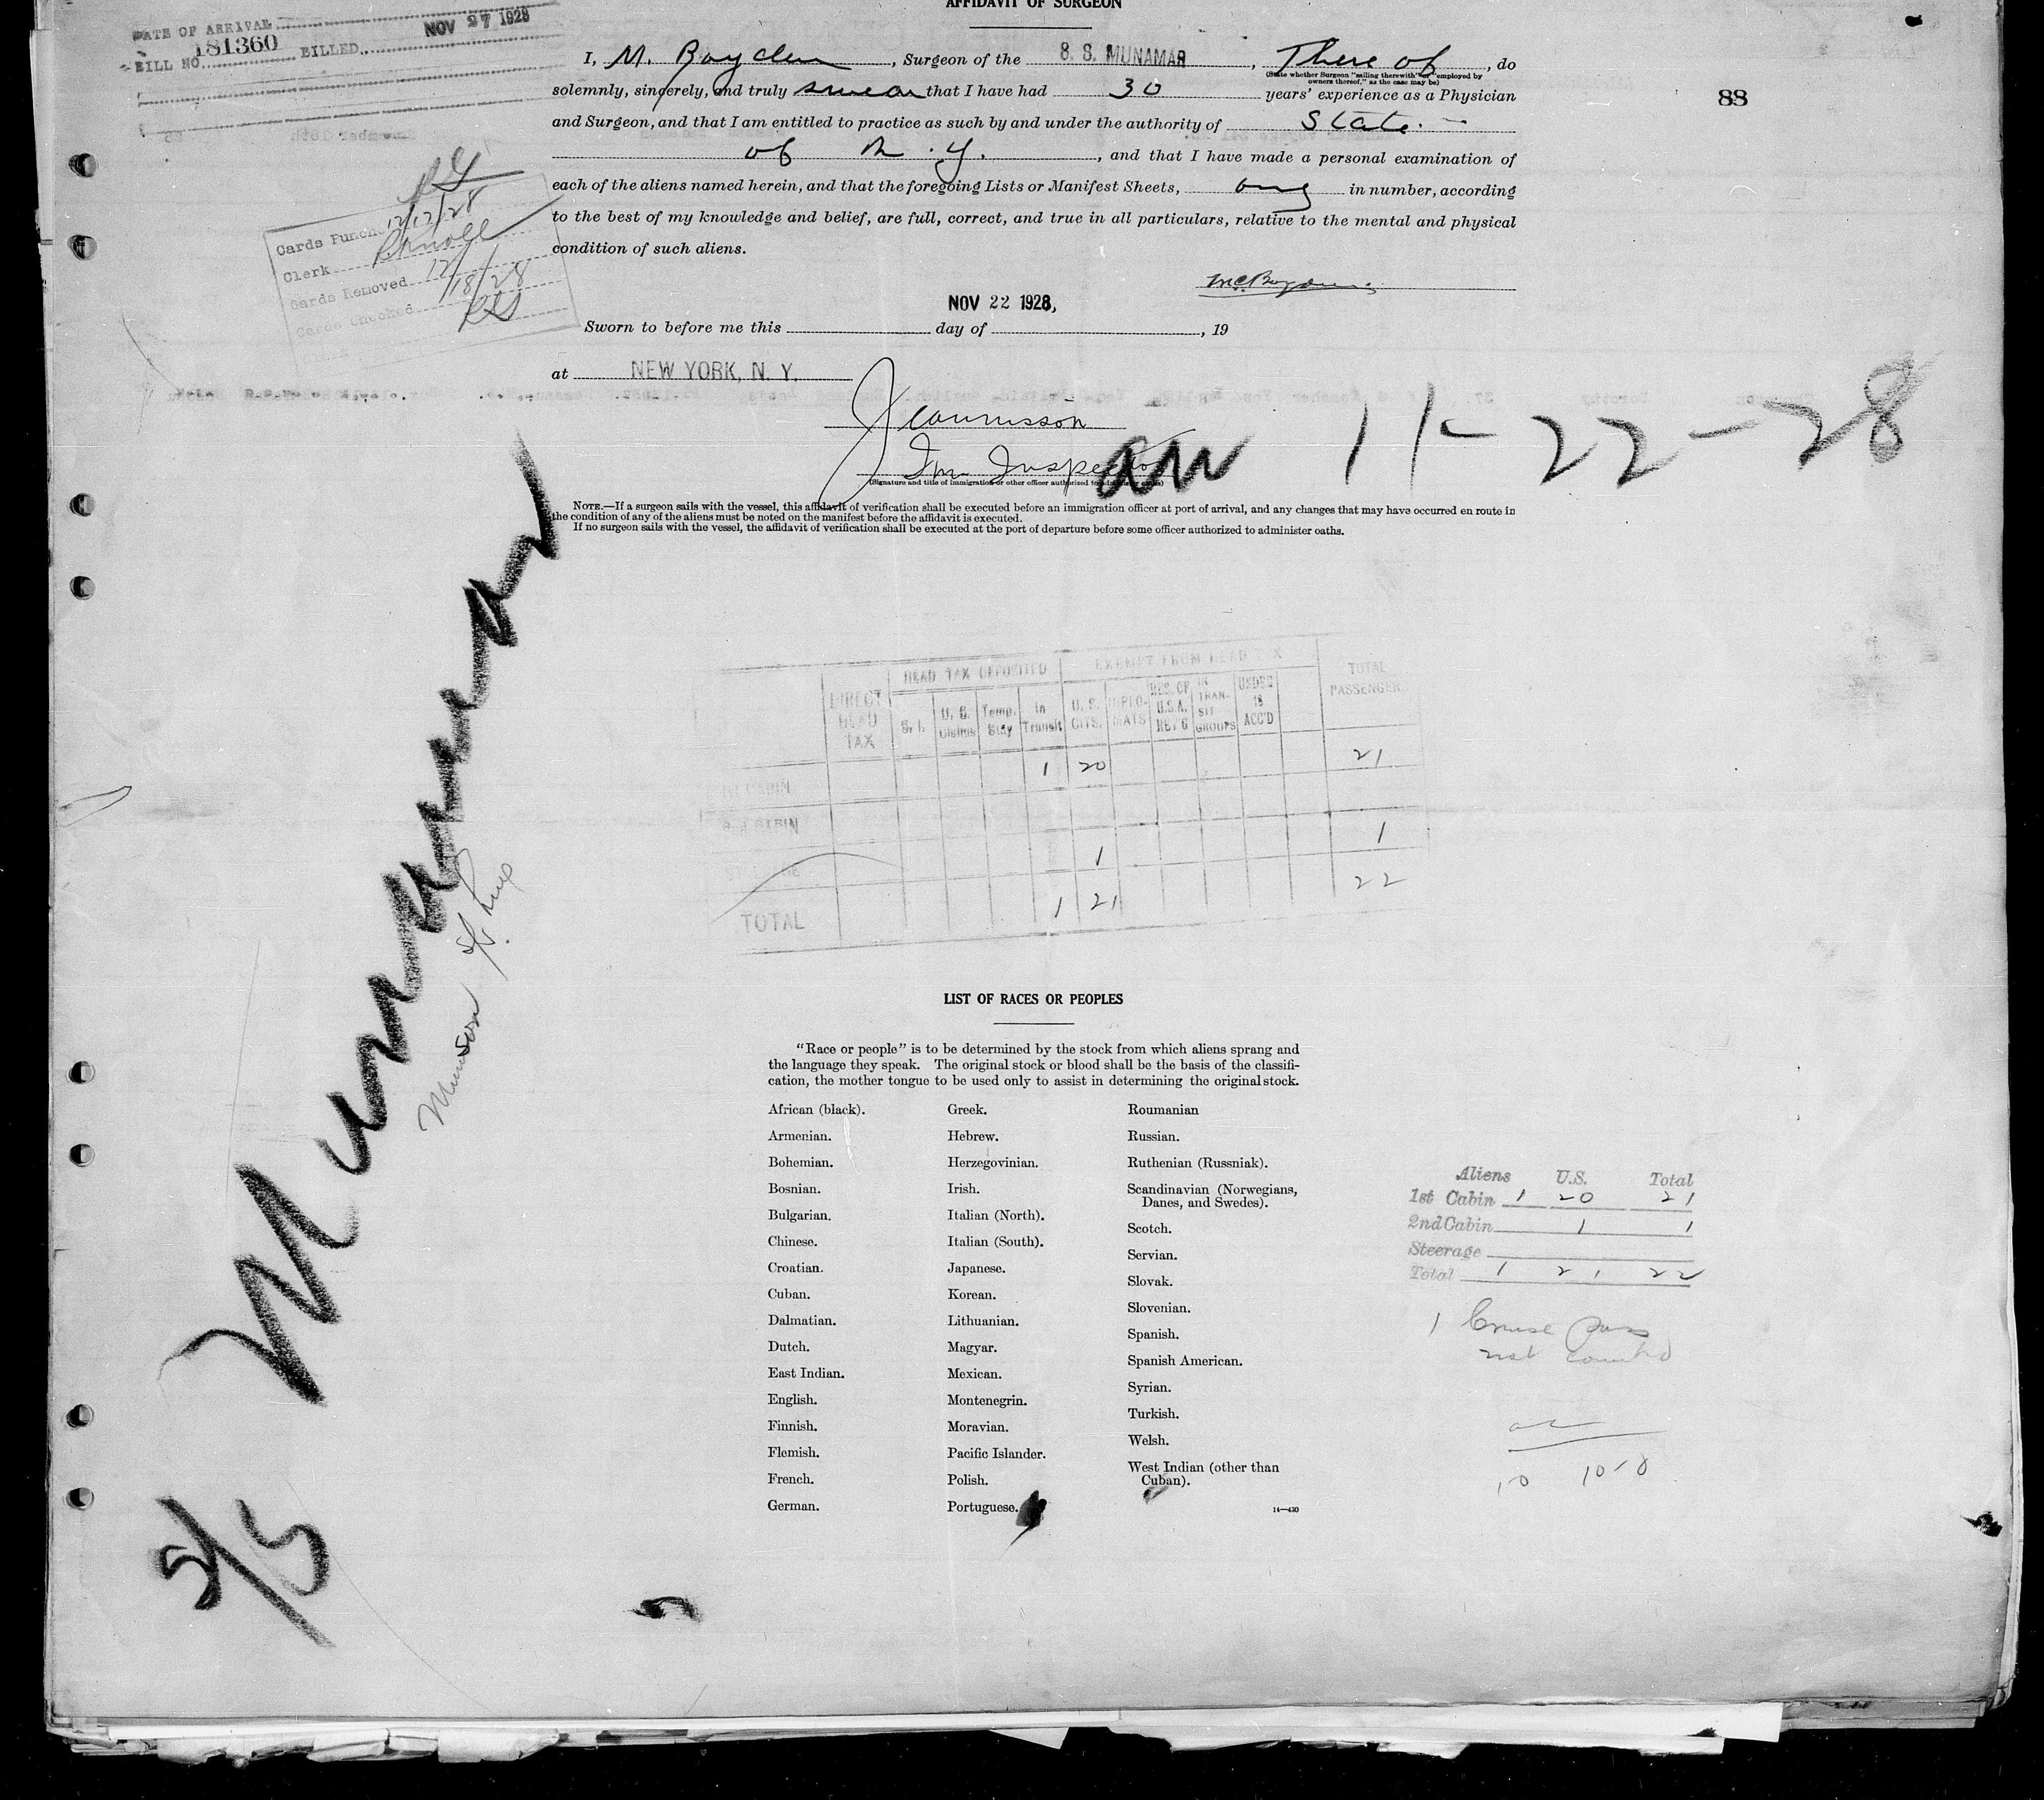 AFFIDAVIT OF SURGEON
DATE OF ARRIVAL NOV 27 1928
BILL NO. 181360 BILLED
88
I, M. Boyden, Surgeon of the S. S. MUNAMAR, There of, do
(State whether Surgeon "sailing therewith" or "employed by owners thereof," as the case may be)
solemnly, sincerely, and truly swear that I have had 30 years' experience as a Physician
and Surgeon, and that I am entitled to practice as such by and under the authority of State
of N.Y., and that I have made a personal examination of
each of the aliens named herein, and that the foregoing Lists or Manifest Sheets, one in number, according
to the best of my knowledge and belief, are full, correct, and true in all particulars, relative to the mental and physical
condition of such aliens.
Cards Punched 12/12/28
Clerk
Cards Removed 12/18/28
Cards Checked
NOV 22 1928,
Sworn to before me this day of , 19
at NEW YORK, N. Y.
Im. Inspector
(Signature and title of immigration or other officer authorized to administer oaths)
11-22-28
NOTE.—If a surgeon sails with the vessel, this affidavit of verification shall be executed before an immigration officer at port of arrival, and any changes that may have occurred en route in
the condition of any of the aliens must be noted on the manifest before the affidavit is executed.
If no surgeon sails with the vessel, the affidavit of verification shall be executed at the port of departure before some officer authorized to administer oaths.
Munamar
Munson
S/S
HEAD TAX DEPOSITED EXEMPT FROM HEAD TAX
DIRECT HEAD TAX S. I. U. S. Claims Temp. Stay In Transit U. S. CITS. DIPLOMATS RES. OF U.S.A. RET'G IN TRANSIT GROUPS UNDER 16 ACC'D TOTAL PASSENGER
1st CABIN 1 20 21
2nd CABIN 1 1
TOTAL 1 21 22
LIST OF RACES OR PEOPLES
"Race or people" is to be determined by the stock from which aliens sprang and
the language they speak. The original stock or blood shall be the basis of the classifi-
cation, the mother tongue to be used only to assist in determining the original stock.
African (black).
Armenian.
Bohemian.
Bosnian.
Bulgarian.
Chinese.
Croatian.
Cuban.
Dalmatian.
Dutch.
East Indian.
English.
Finnish.
Flemish.
French.
German.
Greek.
Hebrew.
Herzegovinian.
Irish.
Italian (North).
Italian (South).
Japanese.
Korean.
Lithuanian.
Magyar.
Mexican.
Montenegrin.
Moravian.
Pacific Islander.
Polish.
Portuguese.
Roumanian
Russian.
Ruthenian (Russniak).
Scandinavian (Norwegians,
Danes, and Swedes).
Scotch.
Servian.
Slovak.
Slovenian.
Spanish.
Spanish American.
Syrian.
Turkish.
Welsh.
West Indian (other than
Cuban).
14—430
Aliens U.S. Total
1st Cabin 1 20 21
2nd Cabin 1 1
Steerage
Total 1 21 22
1 Cruise pass
not counted